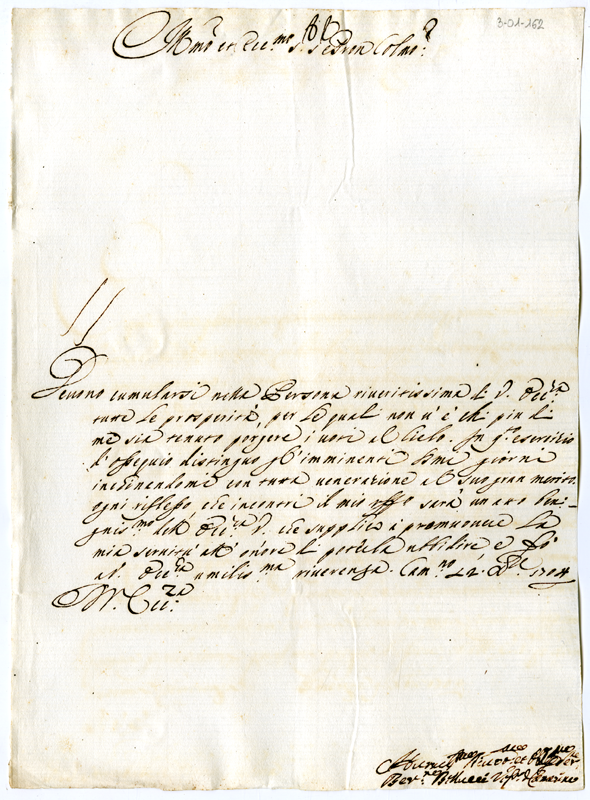 3-01-162
Ill.mo et Ecc.mo S.r P.dron Col.mo
Devono cumularsi nella Persona riveritissima di V. Ecc.za
tutte le prosperità, per le quali non v'è chi più di
me sia tenuto porgere i voti al Cielo. In q.to esercizio
d'ossequio distinguo gl'imminenti S.mi giorni
inchinandomi con tutta venerazione al Suo gran merito.
ogni riflesso, che incontri il mio uff.o sarà un atto beni-
gniss.mo dell' Ecc.za V. che supplico à promuovere la
mia servitù all' onore di poterla ubbidire e fò
a V. Ecc.za umilis.ma riverenza. Cam.no 12 Xbre 1704
V. Ecc.za